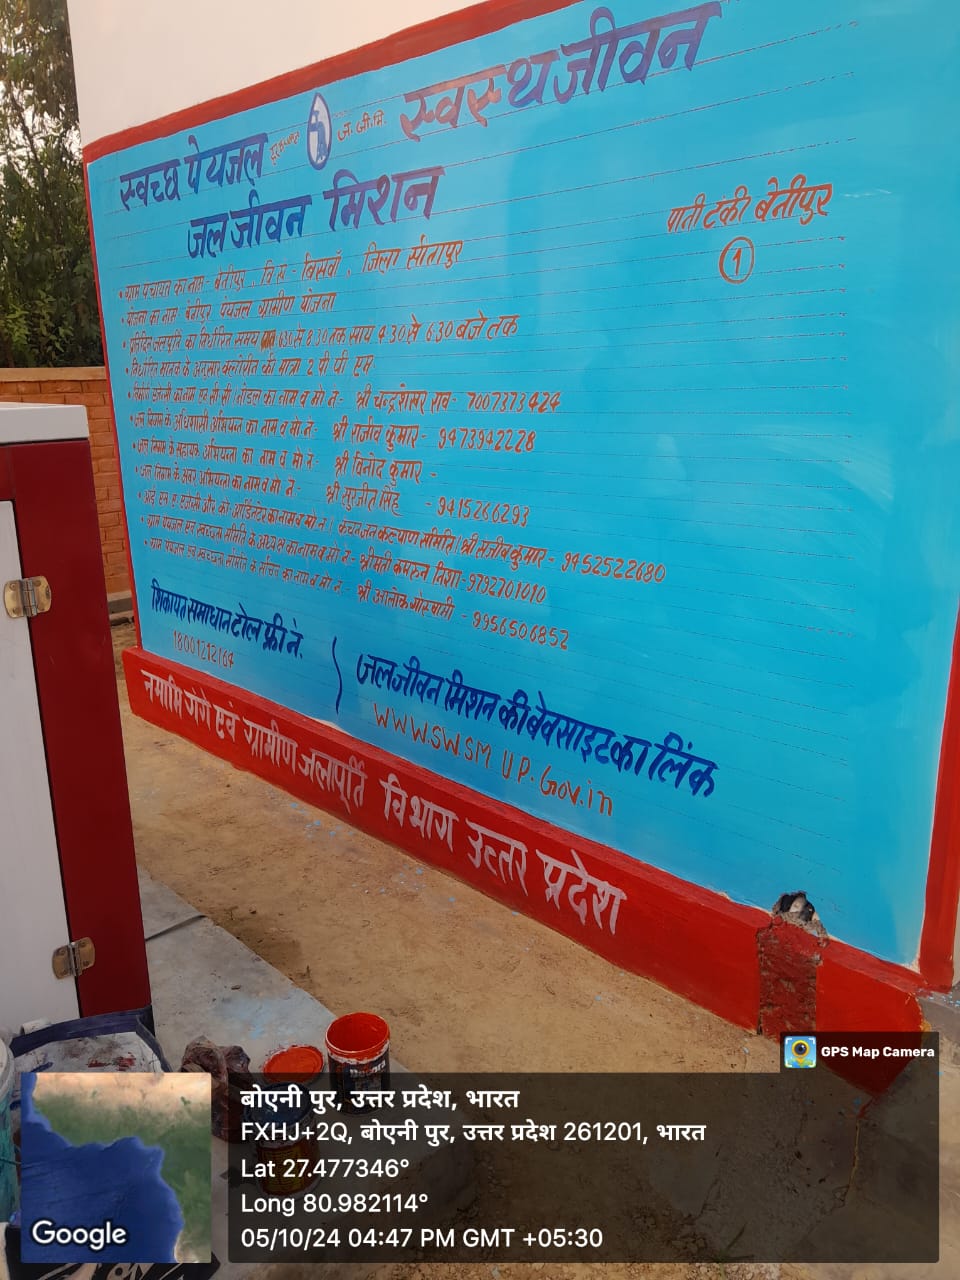 स्वच्छ पेयजल ज.जी.मि. स्वस्थ जीवन
जल जीवन मिशन
पानी टंकी बेनीपुर
1
• ग्राम पंचायत का नाम - बेनीपुर, वि.ख - बिसवाँ, जिला सीतापुर
• योजना का नाम बेनीपुर पेयजल ग्रामीण योजना
• प्रतिदिन जलापूर्ति का निर्धारित समय 6.30 से 8.30 तक सायं 4.30 से 6.30 बजे तक
• निर्धारित मानक के अनुसार क्लोरीन की मात्रा 2 पी पी एम
• निर्माण एजेन्सी का नाम एवं नोडल का नाम व मो नं- श्री चन्द्रशेखर राव- 7007373424
• जल निगम के अधिशासी अभियन्ता का नाम व मो नं:- श्री राजीव कुमार- 9473942228
• जल निगम के सहायक अभियन्ता का नाम व मो नं:- श्री विनोद कुमार -
• जल निगम के अवर अभियन्ता का नाम व मो नं:- श्री सुरजीत सिंह - 9415266293
• आई एस ए एजेंसी और को आर्डिनेटर का नाम व मो.नं.। कंचन जन कल्याण समिति। श्री संजीव कुमार- 9452522680
• ग्राम पेयजल एवं स्वच्छता समिति के अध्यक्ष का नाम व मो नं- श्रीमती कमरुन निशा-9792701010
• ग्राम पेयजल एवं स्वच्छता समिति के सचिव का नाम व मो नं- श्री आलोक गोस्वामी - 9956506852
शिकायत समाधान टोल फ्री नं.
18001212164
जल जीवन मिशन की वेबसाइट का लिंक
WWW.SWSM.UP.Gov.in
नमामि गंगे एवं ग्रामीण जलापूर्ति विभाग उत्तर प्रदेश
GPS Map Camera
बोएनी पुर, उत्तर प्रदेश, भारत
FXHJ+2Q, बोएनी पुर, उत्तर प्रदेश 261201, भारत
Lat 27.477346°
Long 80.982114°
05/10/24 04:47 PM GMT +05:30
Google